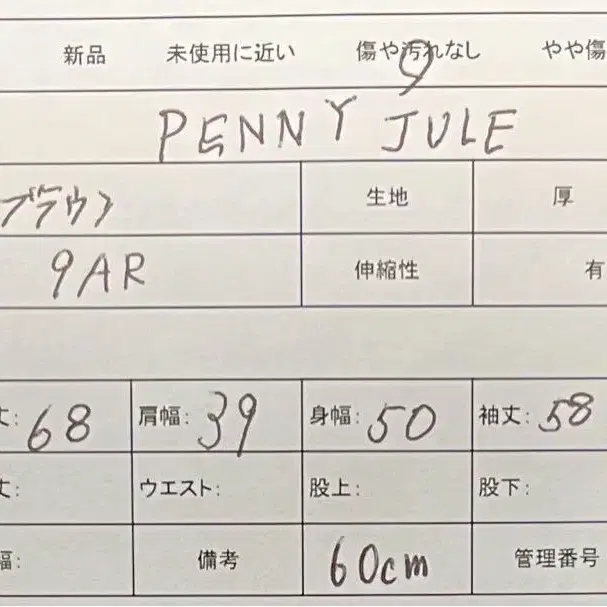 新品 未使用に近い 傷や汚れなし やや傷
PENNY JULE
ブラウン 生地 厚
9AR 伸縮性 有
丈: 68 肩幅: 39 身幅: 50 袖丈: 58
丈: ウエスト: 股上: 股下:
幅: 備考 60cm 管理番号